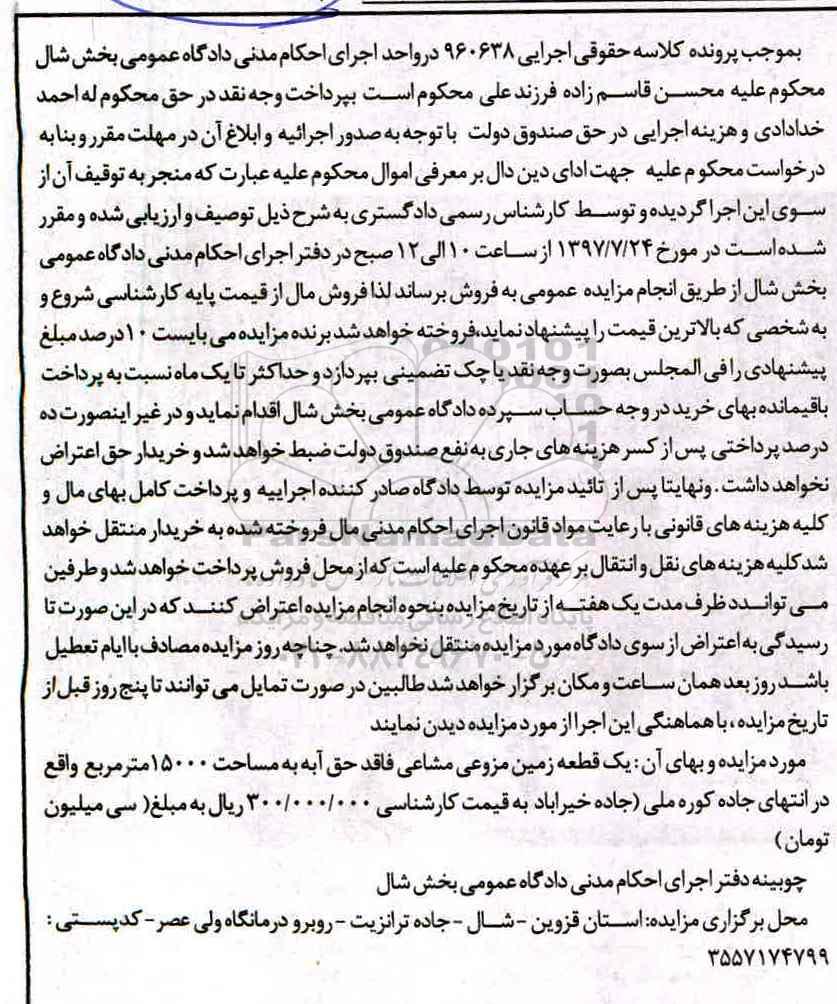 بموجب پرونده کلاسه حقوقی اجرایی ۹۶۰۶۳۸ درواحد اجرای احکام مدنی دادگاه عمومی بخش شال
محکوم علیه محسن قاسم زاده فرزند علی محکوم است بپرداخت وجه نقد در حق محکوم له احمد
خدادادی و هزینه اجرایی در حق صندوق دولت با توجه به صدور اجرائیه و ابلاغ آن در مهلت مقرر و بنا به
درخواست محکو م علیه جهت ادای دین دال بر معرفی اموال محکوم علیه عبارت که منجر به توقیف آن از
سوی این اجرا گردیده و توسط کارشناس رسمی دادگستری به شرح ذیل توصیف و ارزیابی شده و مقرر
شده است در مورخ ۱۳۹۷/۷/۲۴ از ساعت ۱۰ الی ۱۲ صبح در دفتر اجرای احکام مدنی دادگاه عمومی
بخش شال از طریق انجام مزایده عمومی به فروش برساند لذا فروش مال از قیمت پایه کارشناسی شروع و
به شخصی که بالاترین قیمت را پیشنهاد نماید،فروخته خواهد شد برنده مزایده می بایست ۱۰ درصد مبلغ
پیشنهادی را فی المجلس بصورت وجه نقد یا چک تضمینی بپردازد و حداکثر تا یک ماه نسبت به پرداخت
باقیمانده بهای خرید در وجه حساب سپرده دادگاه عمومی بخش شال اقدام نماید و در غیر اینصورت ده
درصد پرداختی پس از کسر هزینه های جاری به نفع صندوق دولت ضبط خواهد شد و خریدار حق اعتراض
نخواهد داشت . ونهایتا پس از تائید مزایده توسط دادگاه صادر کننده اجراییه و پرداخت کامل بهای مال و
کلیه هزینه های قانونی با رعایت مواد قانون اجرای احکام مدنی مال فروخته شده به خریدار منتقل خواهد
شد کلیه هزینه های نقل و انتقال بر عهده محکو م علیه است که از محل فروش پرداخت خواهد شد و طرفین
می توانند ظرف مدت یک هفته از تاریخ مزایده بنحوه انجام مزایده اعتراض کنند که در این صورت تا
رسیدگی به اعتراض از سوی دادگاه مورد مزایده منتقل نخواهد شد. چناچه روز مزایده مصادف با ایام تعطیل
باشد روز بعد همان ساعت و مکان برگزار خواهد شد طالبین در صورت تمایل می توانند تا پنج روز قبل از
تاریخ مزایده ، با هماهنگی این اجرا از مورد مزایده دیدن نمایند
مورد مزایده و بهای آن : یک قطعه زمین مزوعی مشاعی فاقد حق آبه به مساحت ۱۵۰۰۰ مترمربع واقع
در انتهای جاده کوره ملی (جاده خیراباد به قیمت کارشناسی ۳۰۰/۰۰۰/۰۰۰ ریال به مبلغ( سی میلیون
تومان)
چوبینه دفتر اجرای احکام مدنی دادگاه عمومی بخش شال
محل برگزاری مزایده: استان قزوین - شال - جاده ترانزیت - روبرو درمانگاه ولی عصر - کدپستی :
۳۵۵۷۱۷۴۷۹۹